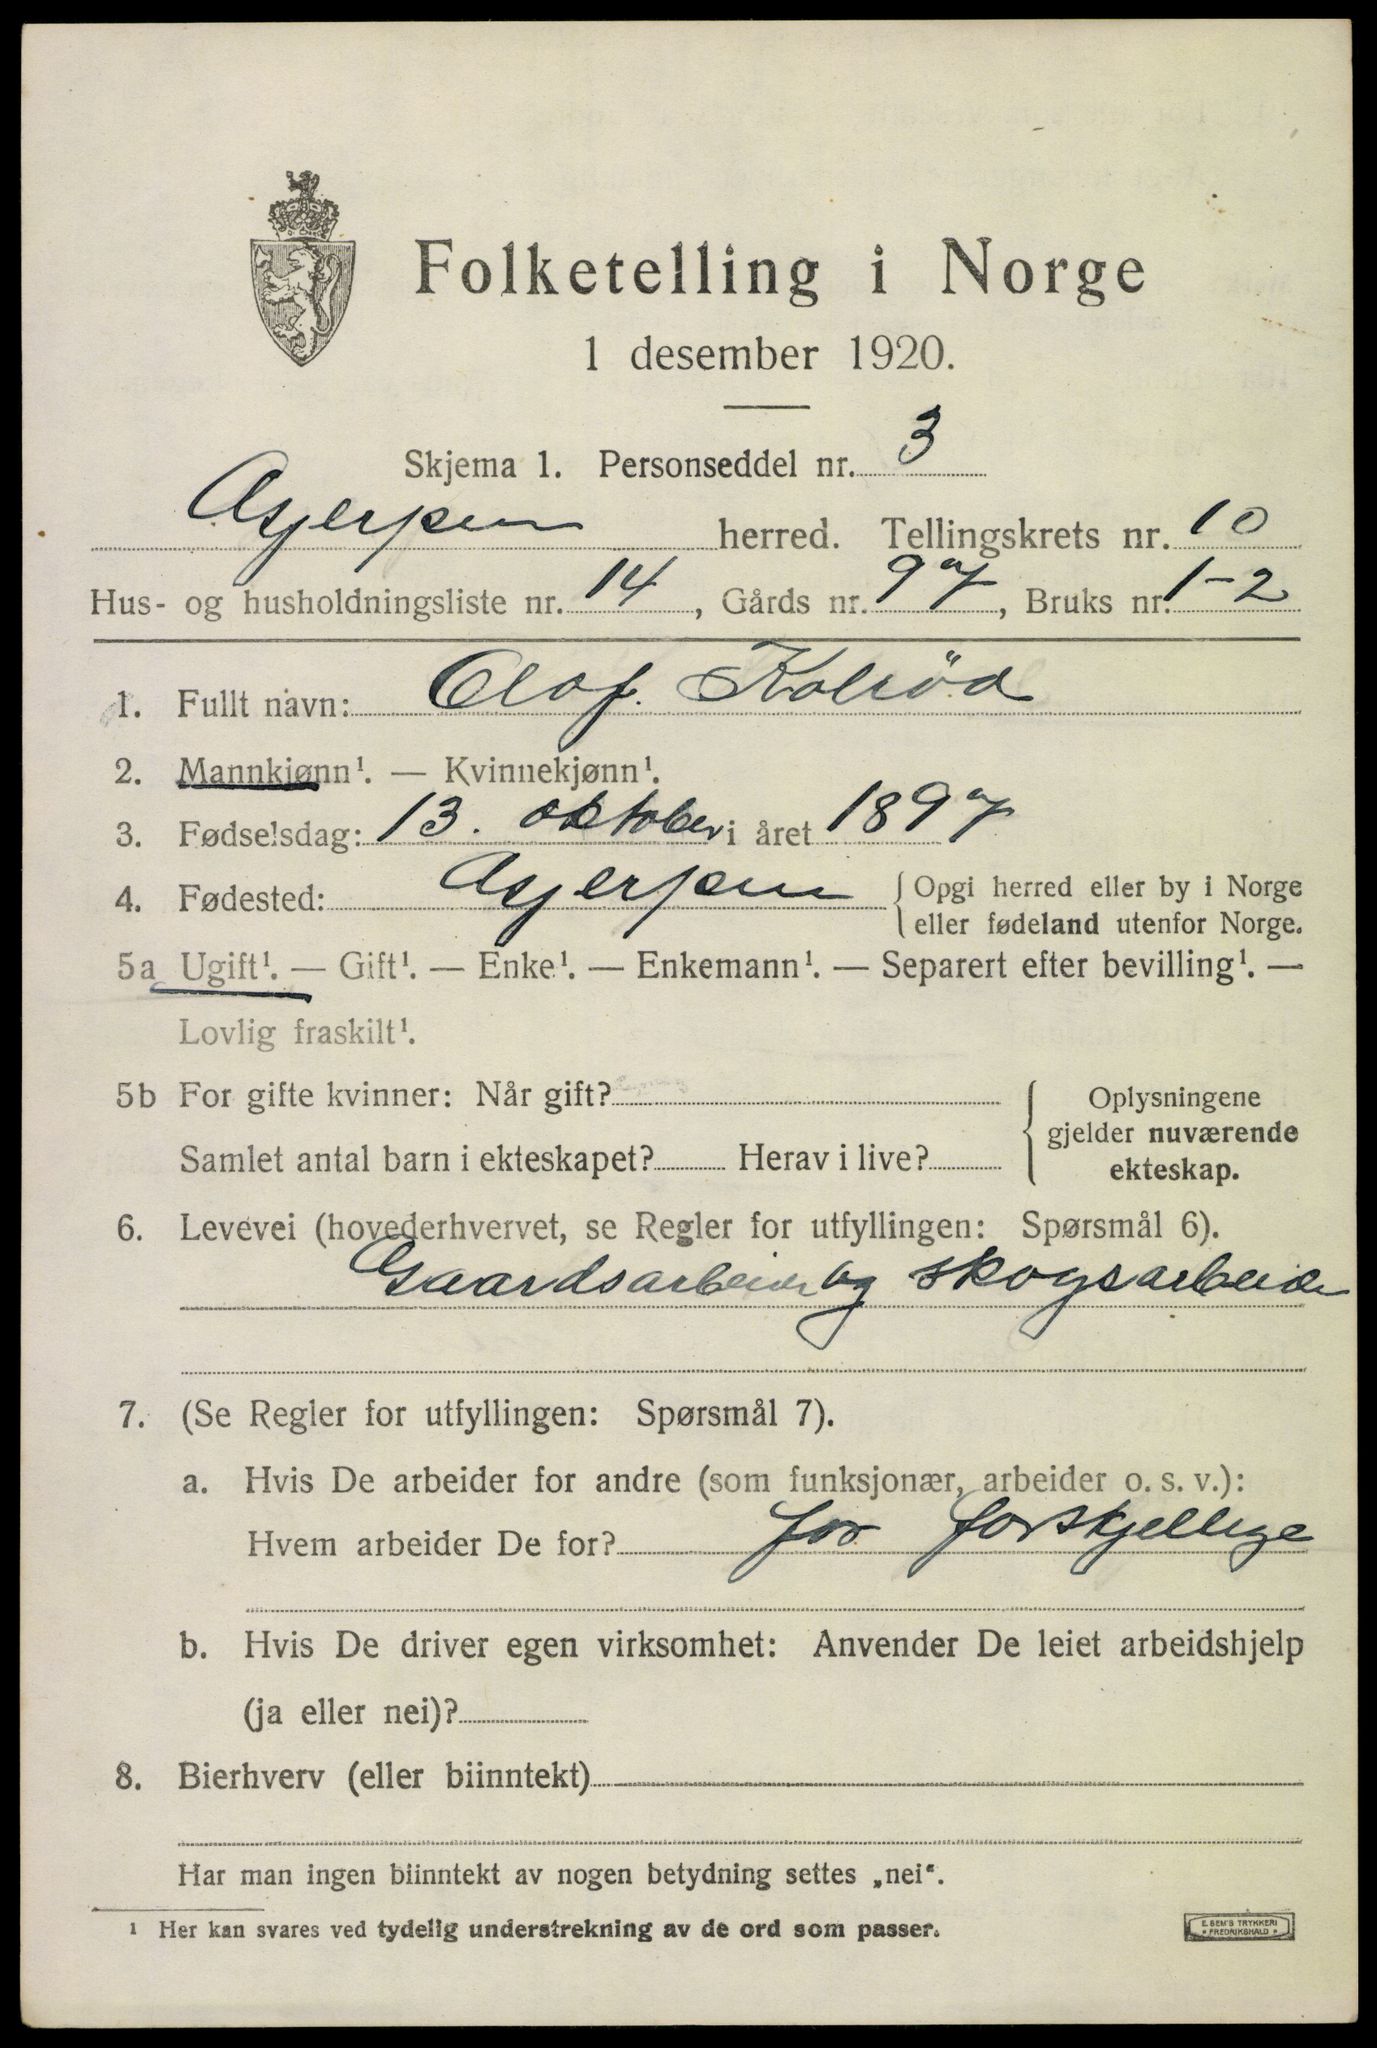 Folketelling i Norge
1 desember 1920.
Skjema 1. Personseddel nr. 3
Gjerpen herred. Tellingskrets nr. 10
Hus- og husholdningsliste nr. 14, Gårds nr. 97, Bruks nr. 1-2
1. Fullt navn: Olaf. Kolrød
2. Mannkjønn¹. — Kvinnekjønn¹.
3. Fødselsdag: 13. oktober i året 1897
4. Fødested: Gjerpen { Opgi herred eller by i Norge
eller fødeland utenfor Norge.
5a Ugift¹. — Gift¹. — Enke¹. — Enkemann¹. — Separert efter bevilling¹. —
Lovlig fraskilt¹.
5b For gifte kvinner: Når gift?
Samlet antal barn i ekteskapet? Herav i live?
{ Oplysningene
gjelder nuværende
ekteskap.
6. Levevei (hovederhvervet, se Regler for utfyllingen: Spørsmål 6).
Gaardsarbeider og skogsarbeider
7. (Se Regler for utfyllingen: Spørsmål 7).
a. Hvis De arbeider for andre (som funksjonær, arbeider o. s. v.):
Hvem arbeider De for? for forskjellige
b. Hvis De driver egen virksomhet: Anvender De leiet arbeidshjelp
(ja eller nei)?
8. Bierhverv (eller biinntekt)
Har man ingen biinntekt av nogen betydning settes „nei“.
¹ Her kan svares ved tydelig understrekning av de ord som passer.
E. SEM'S TRYKKERI
FREDRIKSHALD